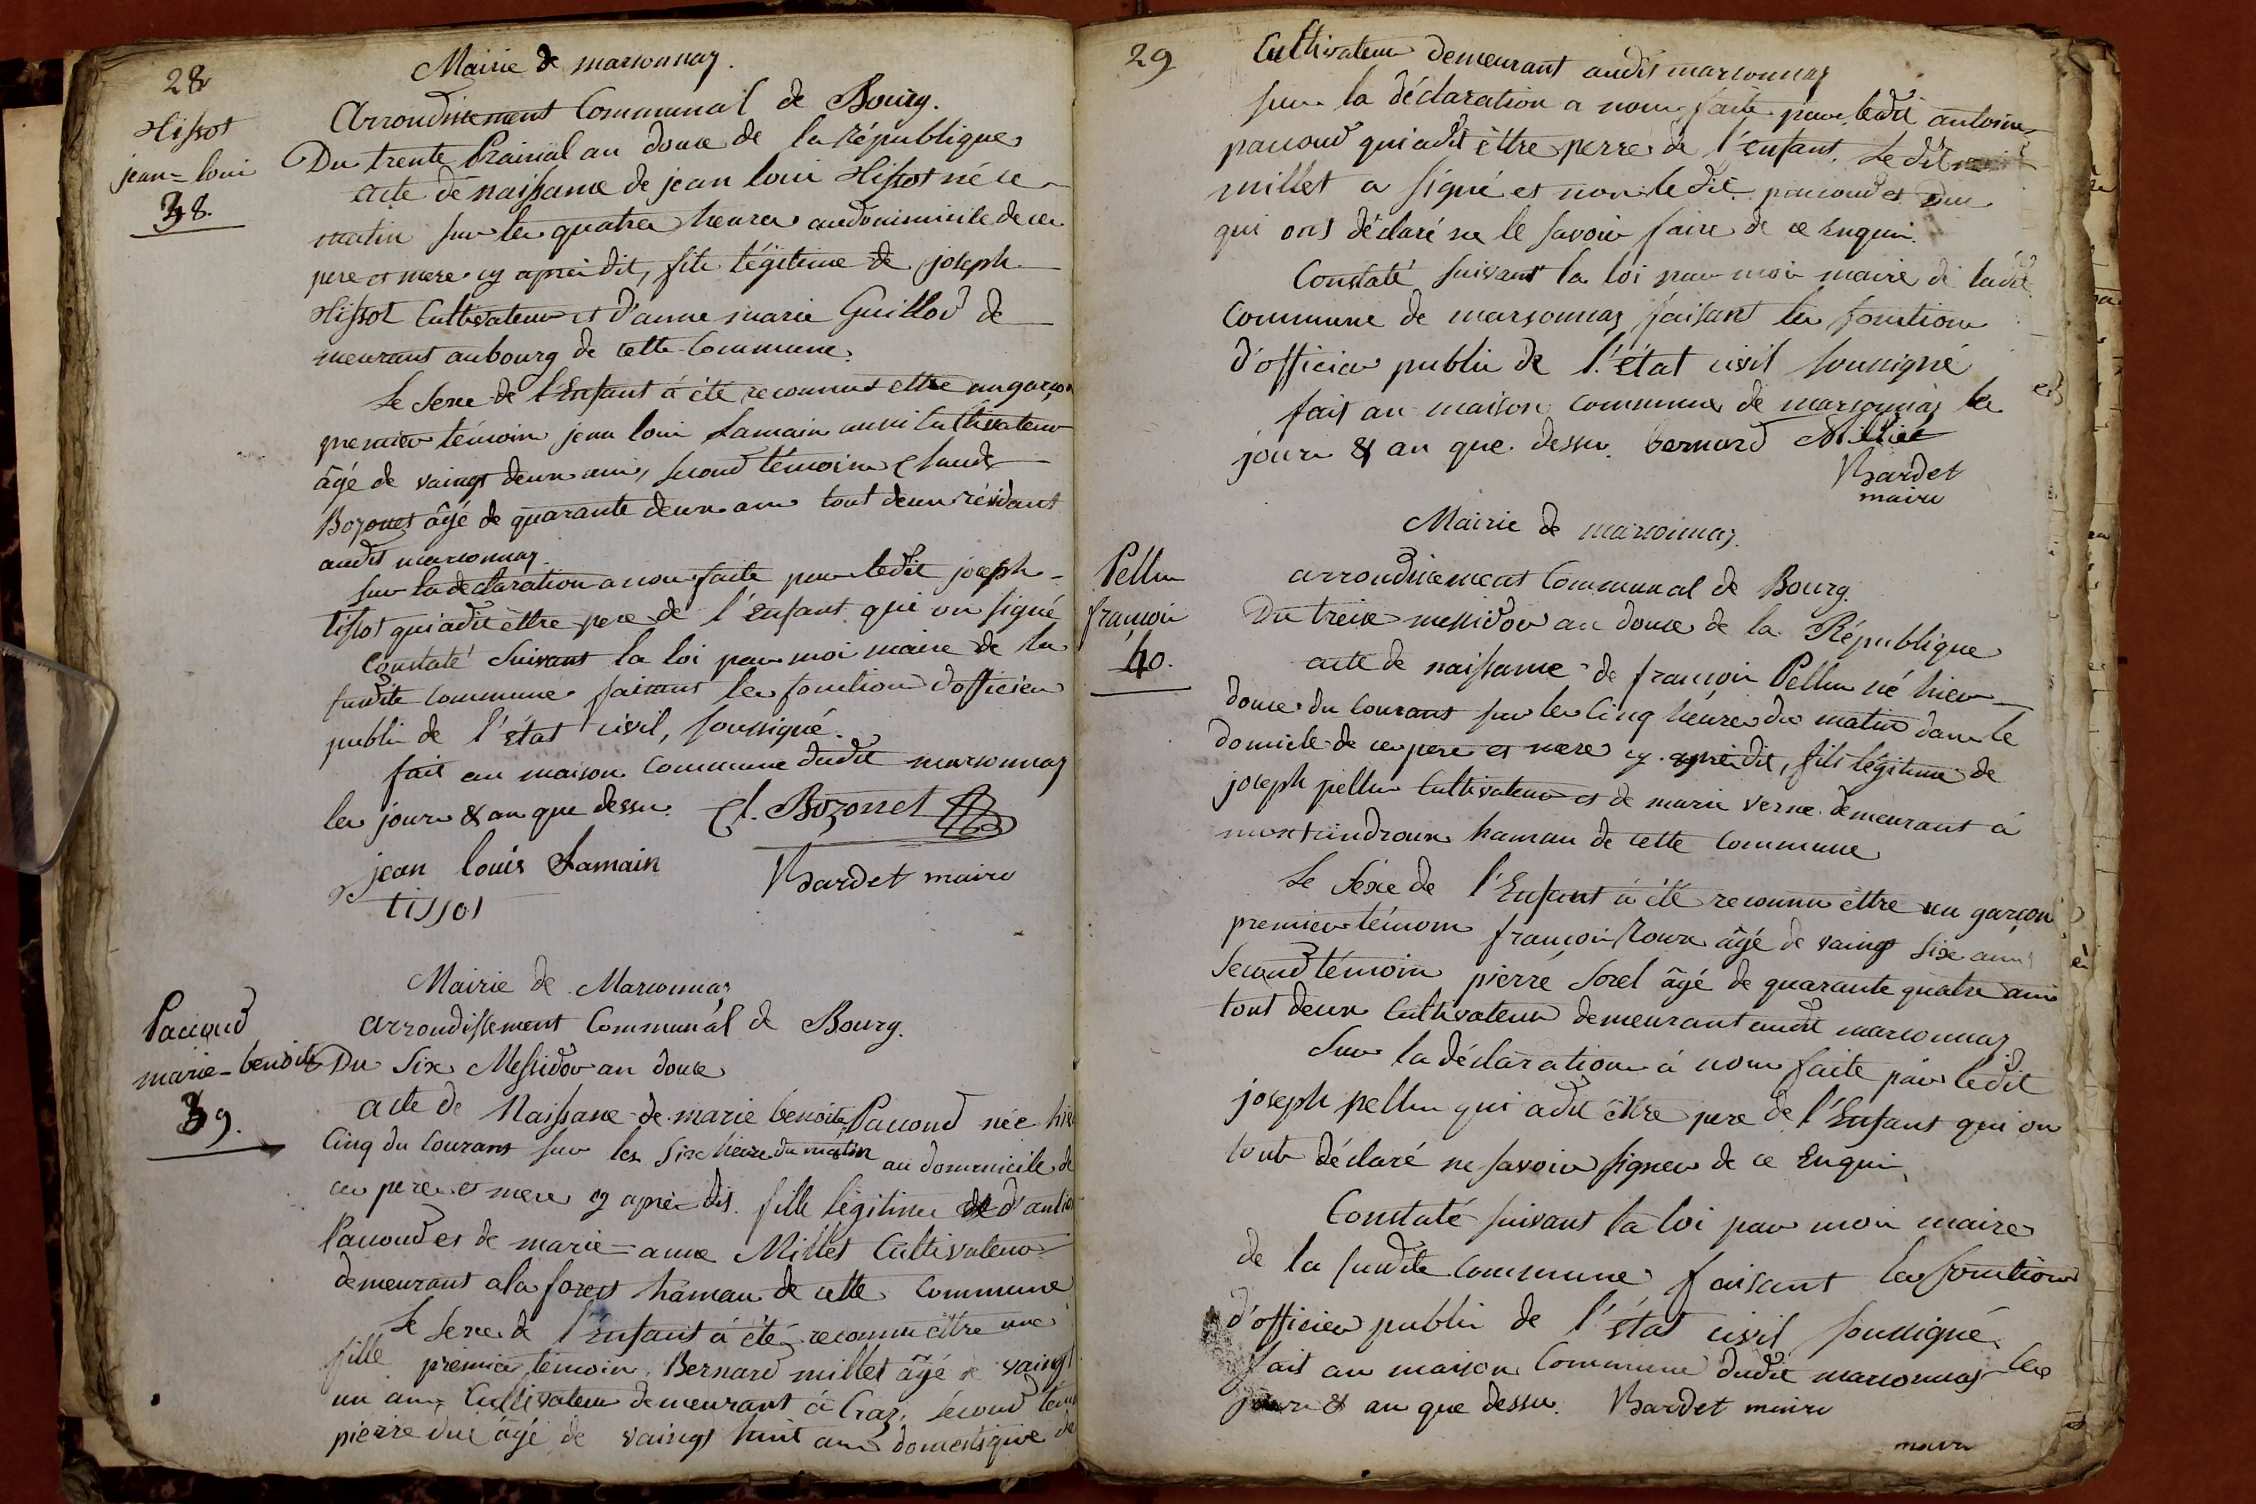 28
Mairie de marsonnaz.
Arrondissement Communal de Bourg.
Tissot
jean=loui
38.
Du trente Prairial an douze de la république
acte de naissance de jean loui Tissot né ce
matin sur les quatre heures au domimicile de ces
pere et mere cy aprés dit, fils légitime de joseph
Tissot Cultivateur et d'anne marie Guillod de
meurant au bourg de cette Commune.
Le Sexe de l'Enfant à été reconnut ettre un garçon
premier témoin jean loui Lamain aussi Cultivateur
âgé de vaingt deux ans, second témoin Claude
Bozonet âgé de quarante deux ans tout deux résidant
audit marsonnaz.
Sur la déclaration a nous faite par ledit joseph
tissot qui a dit être pere de l'Enfant qui on signé
Constaté Suivant la loi par moi maire de la
susdite Commune faisant les fonction d'officier
public de l'état civil, soussigné.
fait en maison Commune dudit marsonnaz
les jour & an que dessu. Cl. Bozonet
jean louis Lamain
Bardet maire
tissot
Mairie de Marsonnaz
arrondissement Communal de Bourg.
Pacoud
marie-benoite
39.
Du Six Messidor an douze
acte de Naissance de marie benoite Pacoud née hier
Cinq du Courant sur les Six heure du matin au domicile de
ces pere et mere cy aprés dit. fille légitime de d'antoi
Pacoud et de marie=anne Millet Cultivateur
demeurant a la forest hamau de cette Commune
Le Sexe de l'Enfant à été reconnu être une
fille premier témoin Bernard millet âgé de vaingt
un ans Cultivateur demeurant à Craz. Sécond témoin
pierre duc âgé de vaingt huit ans domestique de
29
Cultivateur demeurant audit marsonnaz
sur la déclaration a nous faite par ledit antoine
pacoud qui a dit êttre perre de l'Enfant. Le dit
millet a signé et non le dit pacoud et Duc
qui ont déclaré ne le savoir faire de ce Enquis.
Constaté Suivant la loi par moi maire de ladite
Commune de marsonnaz faisant les fonction
d'officier public de l'état civil soussigné
fait en maison Commune de marsonnaz les
jour & an que dessu. bernard Millet
Bardet
maire
Mairie de marsonnaz.
arrondissement Communal de Bourg.
Pellin
françoi
40.
Du treize messidor an douze de la République
acte de naissance de françoi Pellin né hier
douze du Courant sur les Cinq heures du matin dans le
domicile de ces pere et mere cy. aprés dit, fils légitime de
joseph pellin Cultivateur et de marie verne demeurant à
montcindroux hamau de cette Commune
Le Sexe de l'Enfant à été reconnu être un garçon
premier témoin françoi Roux âgé de vaingt six ans
Second témoin pierre Sorel âgé de quarante quatre ans
tout deux Cultivateur demeurant audit marsonnaz
Sur la déclaration à nous faite par ledit
joseph pellin qui a dit être pere de l'Enfant qui on
tout déclaré ne savoir signer de ce Enquis
Constaté suivant la loi par moi maire
de la susdite Commune faisant les fonction
d'officier public de l'état civil soussigné
fait en maison Commune dudit marsonnaz les
jour & an que dessu. Bardet maire
maire